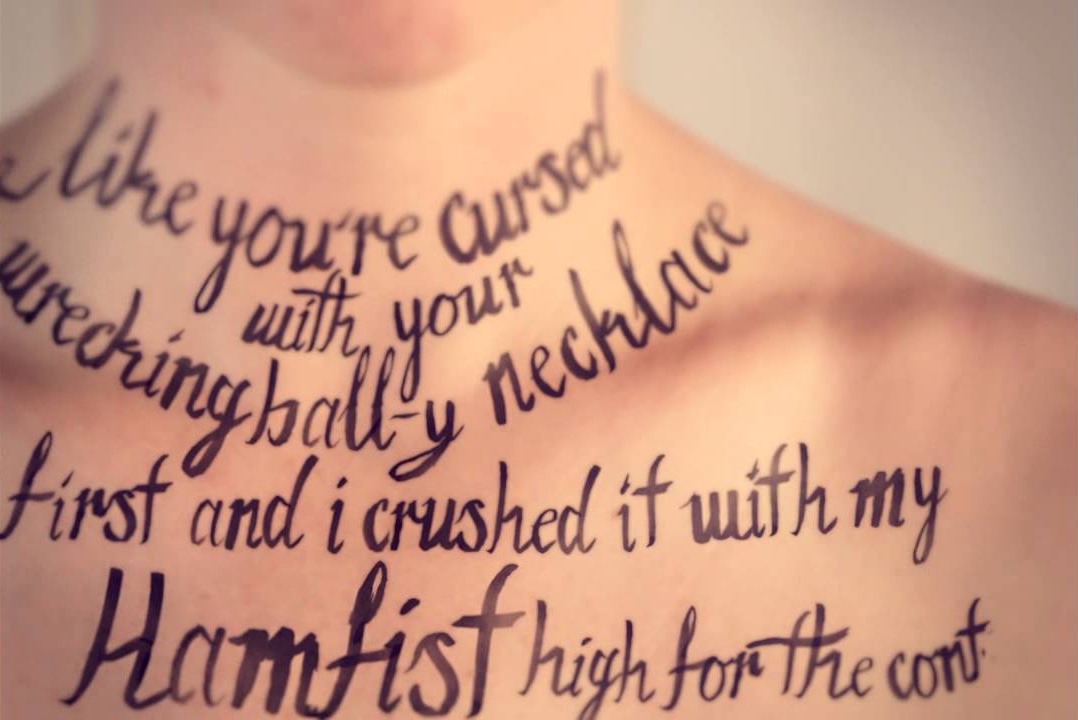 like you're cursed
with your
wrecking ball-y necklace
first and i crushed it with my
Hamfist high for the cont